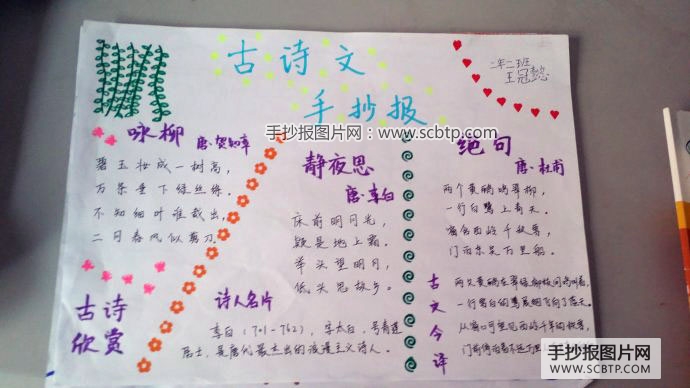 古诗文
手抄报
二年二班
王冠懿
手抄报图片网：www.scbtp.com
咏柳
唐·贺知章
碧玉妆成一树高，
万条垂下绿丝绦。
不知细叶谁裁出，
二月春风似剪刀。
静夜思
唐·李白
床前明月光，
疑是地上霜。
举头望明月，
低头思故乡。
绝句
唐·杜甫
两个黄鹂鸣翠柳，
一行白鹭上青天。
窗含西岭千秋雪，
门泊东吴万里船。
古诗
欣赏
诗人名片
李白（701-762），字太白，号青莲
居士，是唐代最杰出的浪漫主义诗人。
古文今译
两只黄鹂在翠绿柳枝间鸣叫着，
一行雪白的鹭鸶翱向了蓝天。
从窗口可望见西岭千年的积雪，
门前停泊着不远万里
手抄报图片网
SCBTP.COM